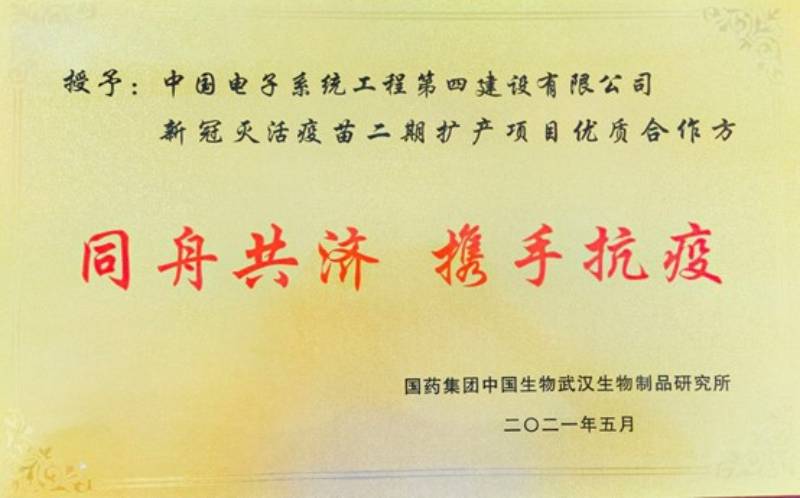 授予：中国电子系统工程第四建设有限公司
新冠灭活疫苗二期扩产项目优质合作方
同舟共济 携手抗疫
国药集团中国生物武汉生物制品研究所
二〇二一年五月